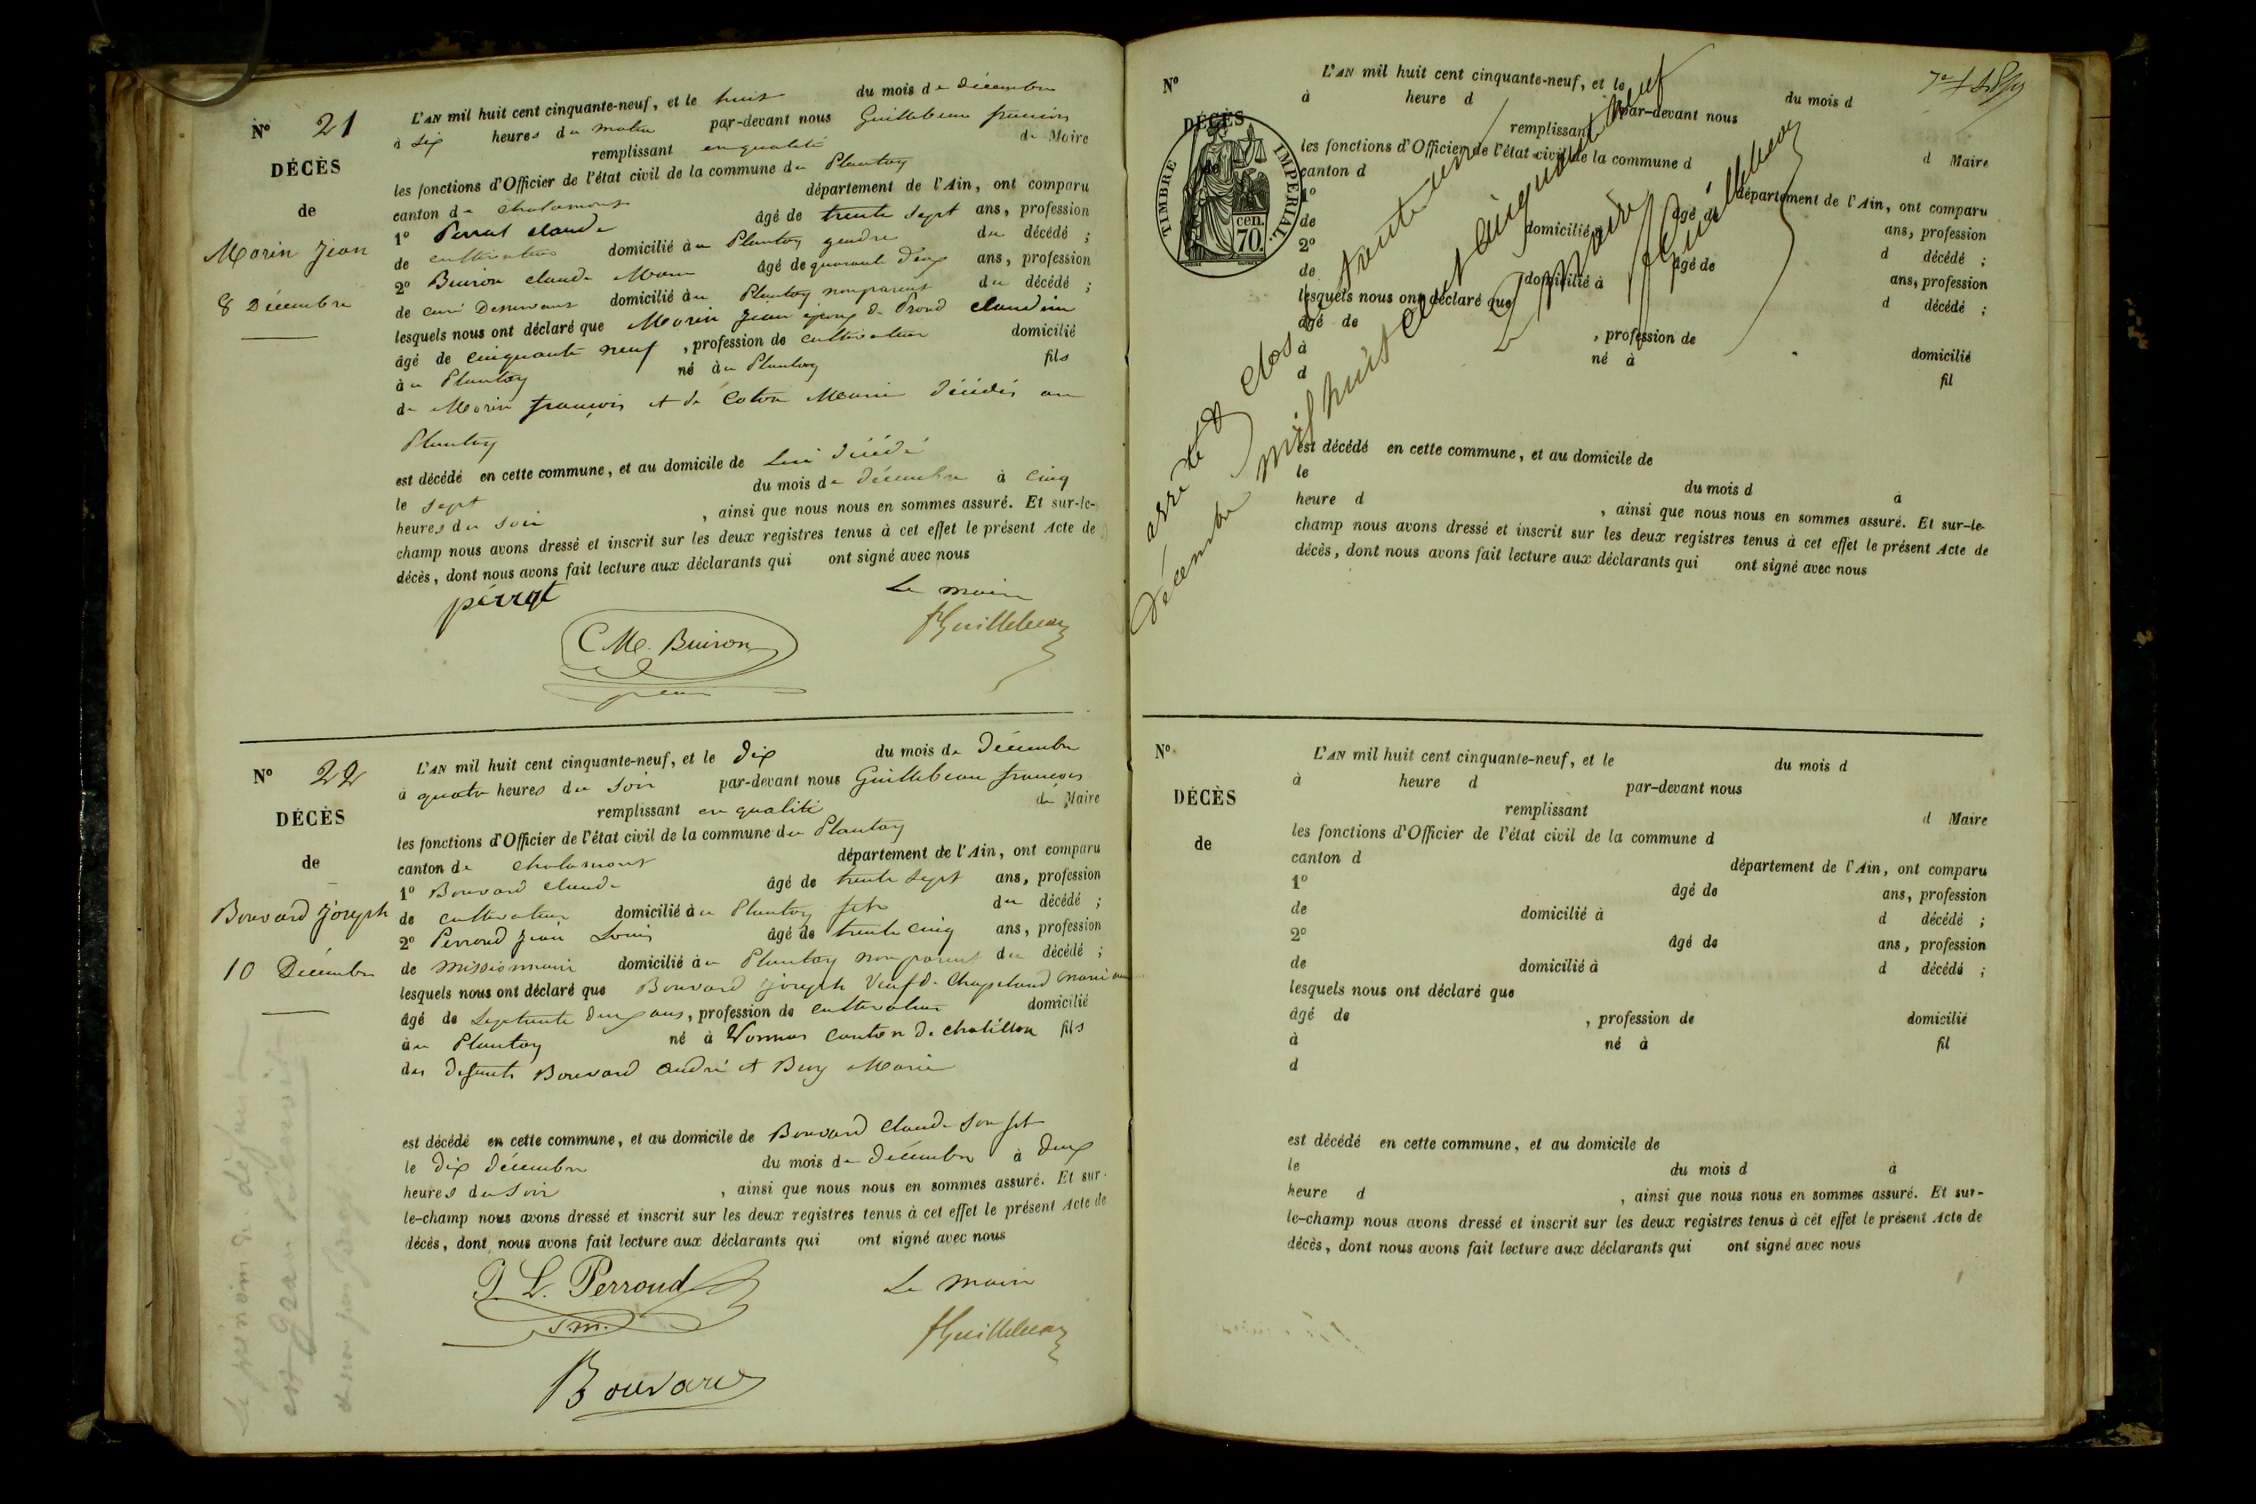 N° 21
DÉCÈS
de
Morin Jean
8 Décembre
L'AN mil huit cent cinquante-neuf, et le huit du mois de décembre
à six heures du matin par-devant nous Guillebeau francois
remplissant en qualité de Maire
les fonctions d'Officier de l'état civil de la commune du Plantay
canton de chalamont département de l'Ain, ont comparu
1° Perrat claude âgé de trente sept ans, profession
de cultivateur domicilié au Plantay gendre du décédé ;
2° Buiron claude Marie âgé de quarante deux ans, profession
de curé Desservant domicilié au Plantay non parent du décédé ;
lesquels nous ont déclaré que Morin Jean époux de Proud claudine
âgé de cinquante neuf , profession de cultivateur domicilié
au Plantay né au Plantay fils
de Morin françois et de Coton Marie décédés au
Plantay
est décédé en cette commune, et au domicile de Lui décédé
le sept du mois de décembre à cinq
heures du soir , ainsi que nous nous en sommes assuré. Et sur-le-
champ nous avons dressé et inscrit sur les deux registres tenus à cet effet le présent Acte de
décès, dont nous avons fait lecture aux déclarants qui ont signé avec nous
pérrat Le maire
C. M. Buiron fGuillebeau
N° 22
DÉCÈS
de
Bouvard Joseph
10 Décembre
L'AN mil huit cent cinquante-neuf, et le dix du mois de Décembre
à quatre heures du soir par-devant nous Guillebeau francois
remplissant en qualité de Maire
les fonctions d'Officier de l'état civil de la commune du Plantay
canton de chalamont département de l'Ain, ont comparu
1° Bouvard claude âgé de trente sept ans, profession
de cultivateur domicilié au Plantay fils du décédé ;
2° Perroud Jean Louis âgé de trente cinq ans, profession
de missionnaire domicilié au Plantay non parent du décédé ;
lesquels nous ont déclaré que Bouvard Joseph Veuf de Chapeland mariane
âgé de Septante deux ans, profession de cultivateur domicilié
au Plantay né à Vonnas canton de chatillon fils
des defunts Bouvard andré et Buy Marie
est décédé en cette commune, et au domicile de Bouvard claude son fils
le dix décembre du mois de décembre à deux
heures du soir , ainsi que nous nous en sommes assuré. Et sur-
le-champ nous avons dressé et inscrit sur les deux registres tenus à cet effet le présent Acte de
décès, dont nous avons fait lecture aux déclarants qui ont signé avec nous
J. L. Perroud Le maire
s m. fGuillebeau
Bouvard
Le prénom du défunt
est Jean Benoit
et non pas Joseph
N°
DÉCÈS
de
TIMBRE IMPERIAL.
cen.
70.
L'AN mil huit cent cinquante-neuf, et le du mois d
à heure d par-devant nous
remplissant d Maire
les fonctions d'Officier de l'état civil de la commune d
canton d département de l'Ain, ont comparu
1° âgé de ans, profession
de domicilié à d décédé ;
2° âgé de ans, profession
de domicilié à d décédé ;
lesquels nous ont déclaré que
âgé de , profession de domicilié
à né à fil
d
est décédé en cette commune, et au domicile de
le du mois d à
heure d , ainsi que nous nous en sommes assuré. Et sur-le-
champ nous avons dressé et inscrit sur les deux registres tenus à cet effet le présent Acte de
décès, dont nous avons fait lecture aux déclarants qui ont signé avec nous
arrêté & clos le trente un
Décembre mil huit cent cinquante neuf
Le maire
fGuillebeau
N°
DÉCÈS
de
L'AN mil huit cent cinquante-neuf, et le du mois d
à heure d par-devant nous
remplissant d Maire
les fonctions d'Officier de l'état civil de la commune d
canton d département de l'Ain, ont comparu
1° âgé de ans, profession
de domicilié à d décédé ;
2° âgé de ans, profession
de domicilié à d décédé ;
lesquels nous ont déclaré que
âgé de , profession de domicilié
à né à fil
d
est décédé en cette commune, et au domicile de
le du mois d à
heure d , ainsi que nous nous en sommes assuré. Et sur-
le-champ nous avons dressé et inscrit sur les deux registres tenus à cet effet le présent Acte de
décès, dont nous avons fait lecture aux déclarants qui ont signé avec nous